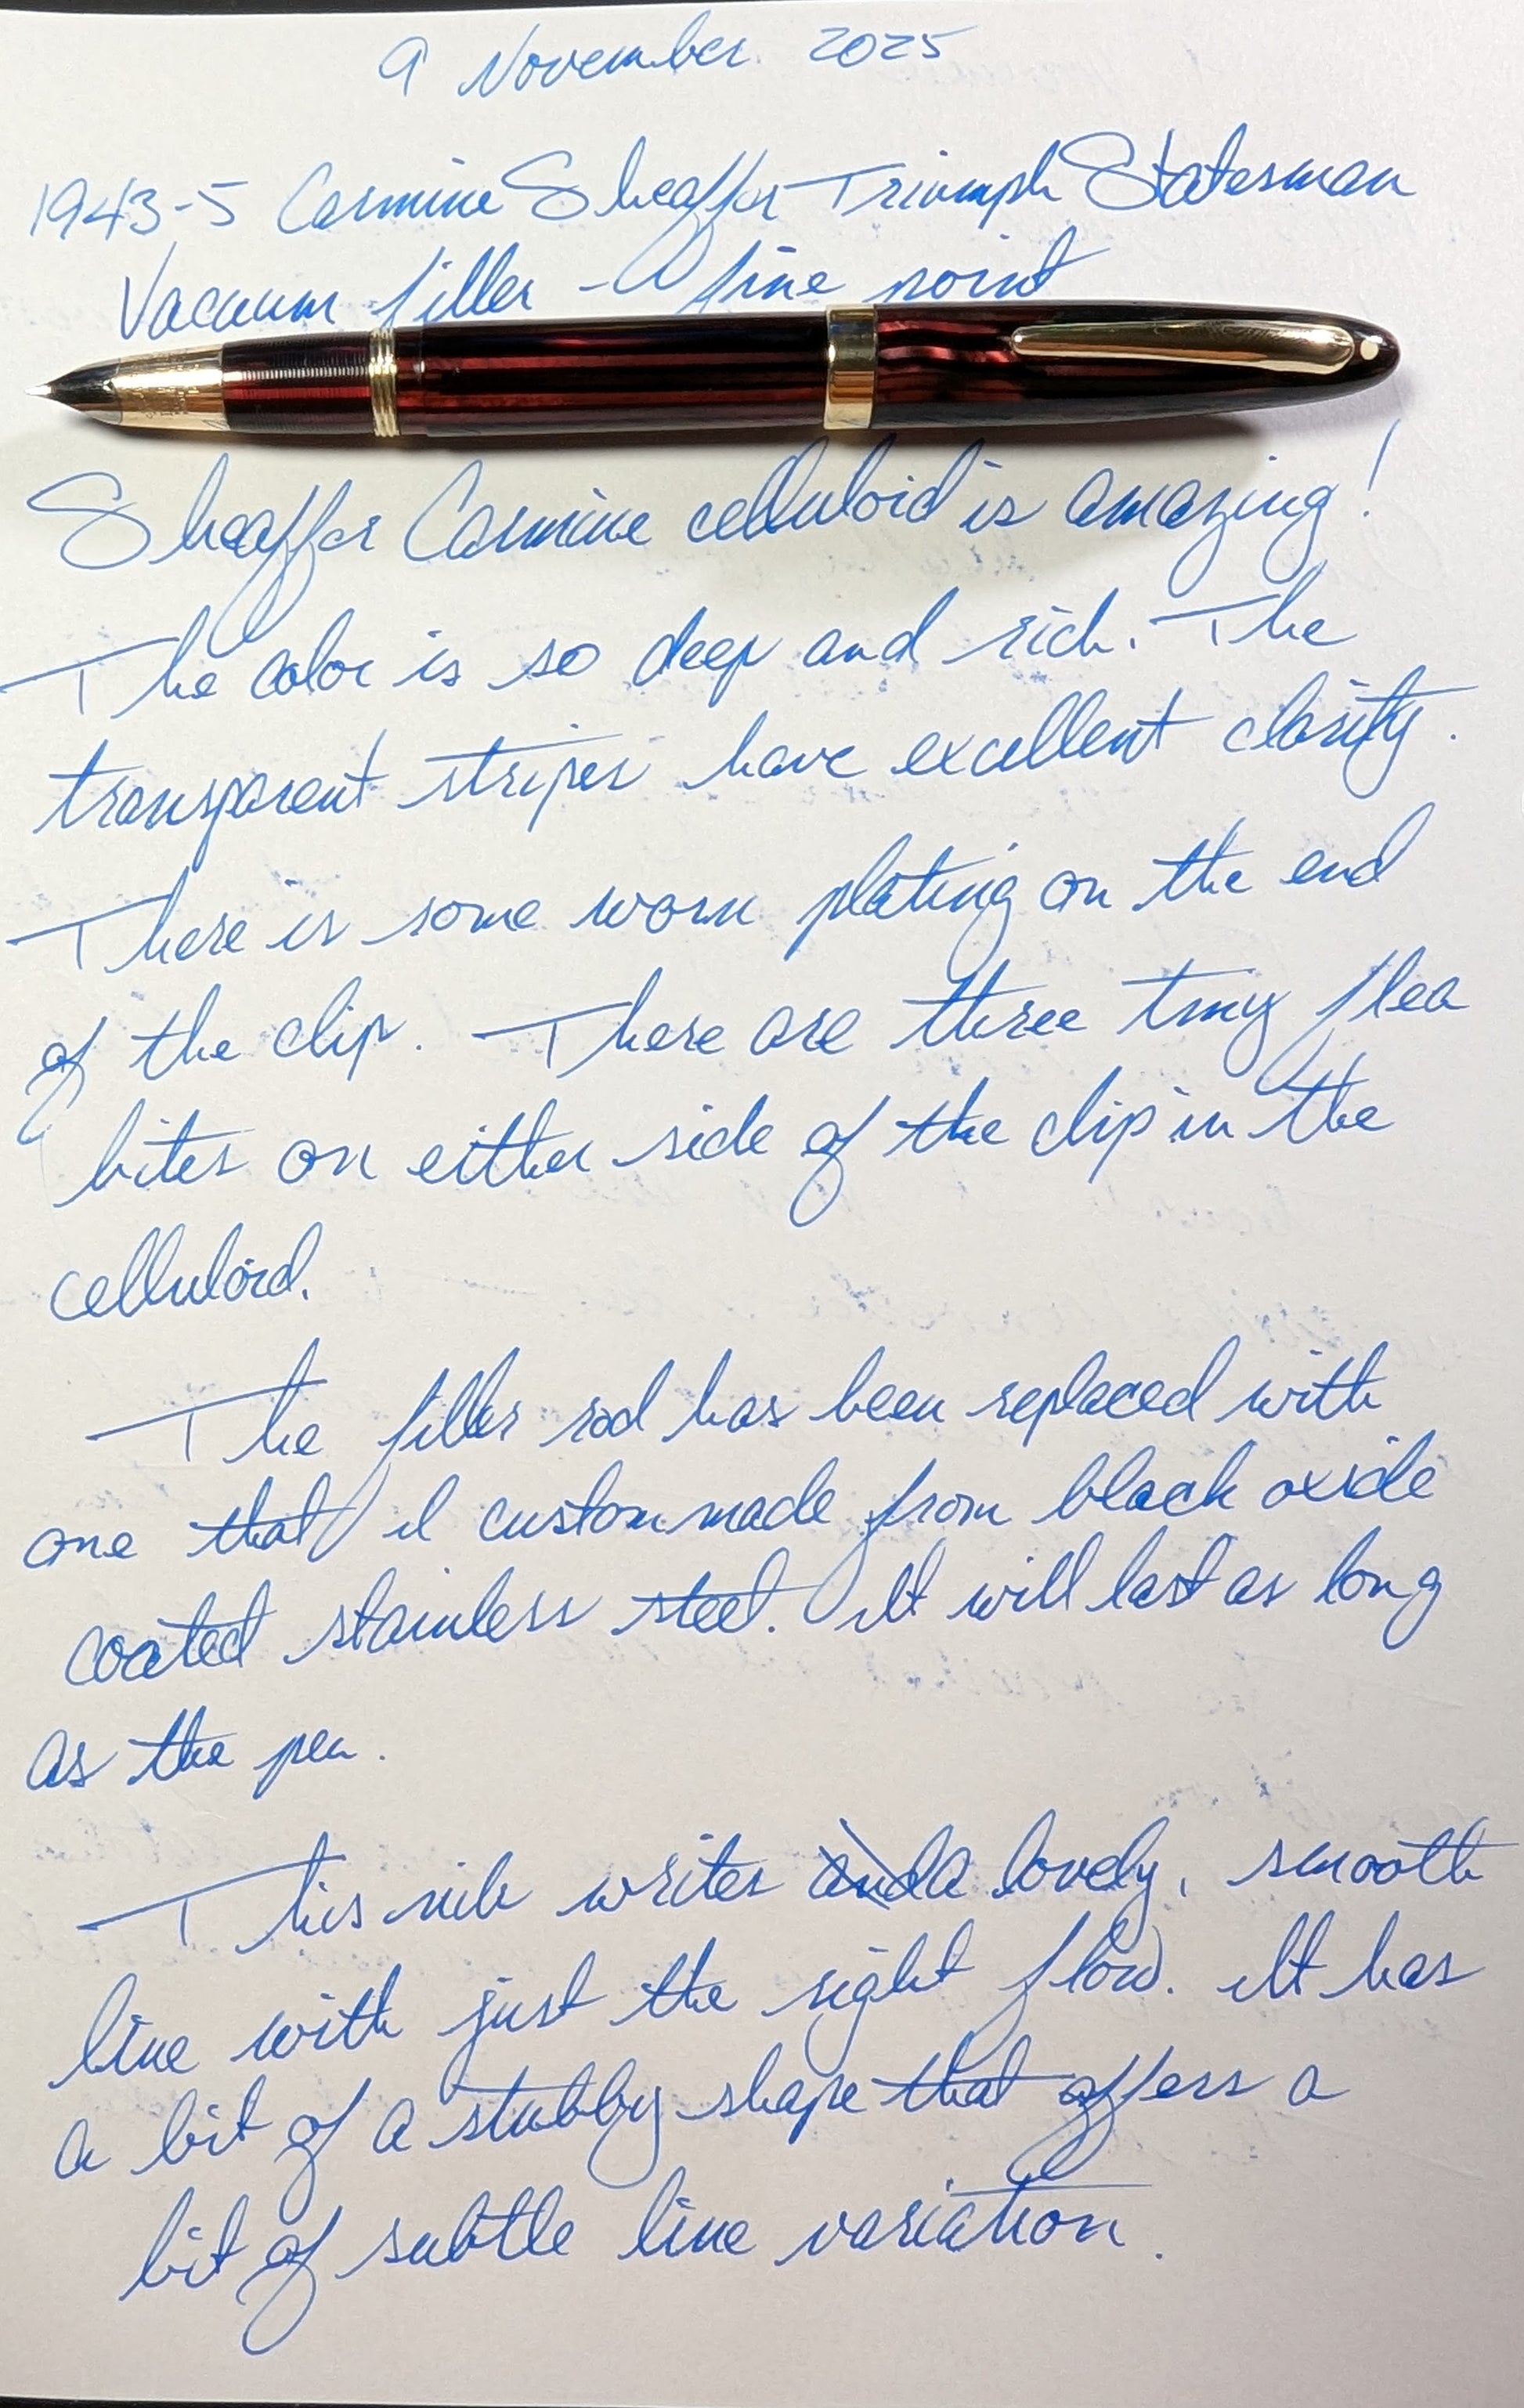 9 November 2025
1943-5 Carmine Sheaffer Triumph Statesman
Vacuum filler - fine point
Sheaffer Carmine celluloid is amazing!
The color is so deep and rich. The
transparent stripes have excellent clarity.
There is some worn plating on the end
of the clip. There are three tiny flea
bites on either side of the clip in the
celluloid.
The filler rod has been replaced with
one that I custom made from black oxide
coated stainless steel. It will last as long
as the pen.
This nib writes and a lovely, smooth
line with just the right flow. It has
a bit of a stubby shape that offers a
bit of subtle line variation.